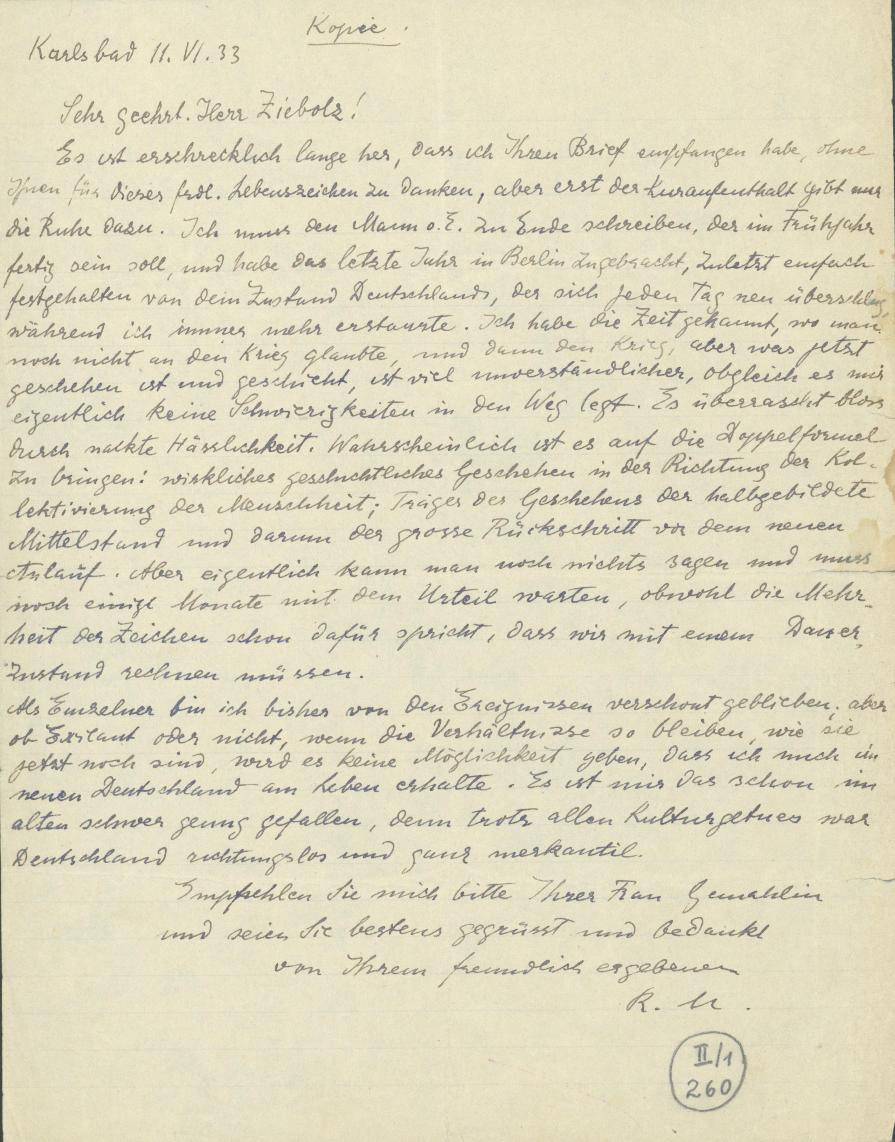 Kopie.
Karlsbad 11. VI. 33
Sehr geehrt. Herr Ziebolz!
Es ist erschrecklich lange her, dass ich Ihren Brief empfangen habe, ohne
Ihnen für dieses frdl. Lebenszeichen zu danken, aber erst der Kuraufenthalt gibt mir
die Ruhe dazu. Ich muss den Mann o. E. zu Ende schreiben, der im Frühjahr
fertig sein soll, und habe das letzte Jahr in Berlin zugebracht, zuletzt einfach
festgehalten von dem Zustand Deutschlands, der sich jeden Tag neu überschlug,
während ich immer mehr erstarrte. Ich habe die Zeit gekannt, wo man
noch nicht an den Krieg glaubte, und dann den Krieg, aber was jetzt
geschehen ist und geschieht, ist viel unverständlicher, obgleich es mir
eigentlich keine Schwierigkeiten in den Weg legt. Es überrascht bloss
durch nackte Hässlichkeit. Wahrscheinlich ist es auf die Doppelformel
zu bringen: wirkliches geschichtliches Geschehen in der Richtung der Kol-
lektivierung der Menschheit; Träger des Geschehens der halbgebildete
Mittelstand und darum der grosse Rückschritt vor dem neuen
Anlauf. Aber eigentlich kann man noch nichts sagen und muss
noch einige Monate mit dem Urteil warten, obwohl die Mehr-
heit der Zeichen schon dafür spricht, dass wir mit einem Dauer-
zustand rechnen müssen.
Als Einzelner bin ich bisher von den Ereignissen verschont geblieben; aber
ob Exilant oder nicht, wenn die Verhältnisse so bleiben, wie sie
jetzt noch sind, wird es keine Möglichkeit geben, dass ich mich im
neuen Deutschland am Leben erhalte. Es ist mir das schon im
alten schwer genug gefallen, denn trotz allen Kulturgetues war
Deutschland richtungslos und ganz merkantil.
Empfehlen Sie mich bitte Ihrer Frau Gemahlin
und seien Sie bestens gegrüsst und bedankt
von Ihrem freundlich ergebenen
R. M.
II/1
260